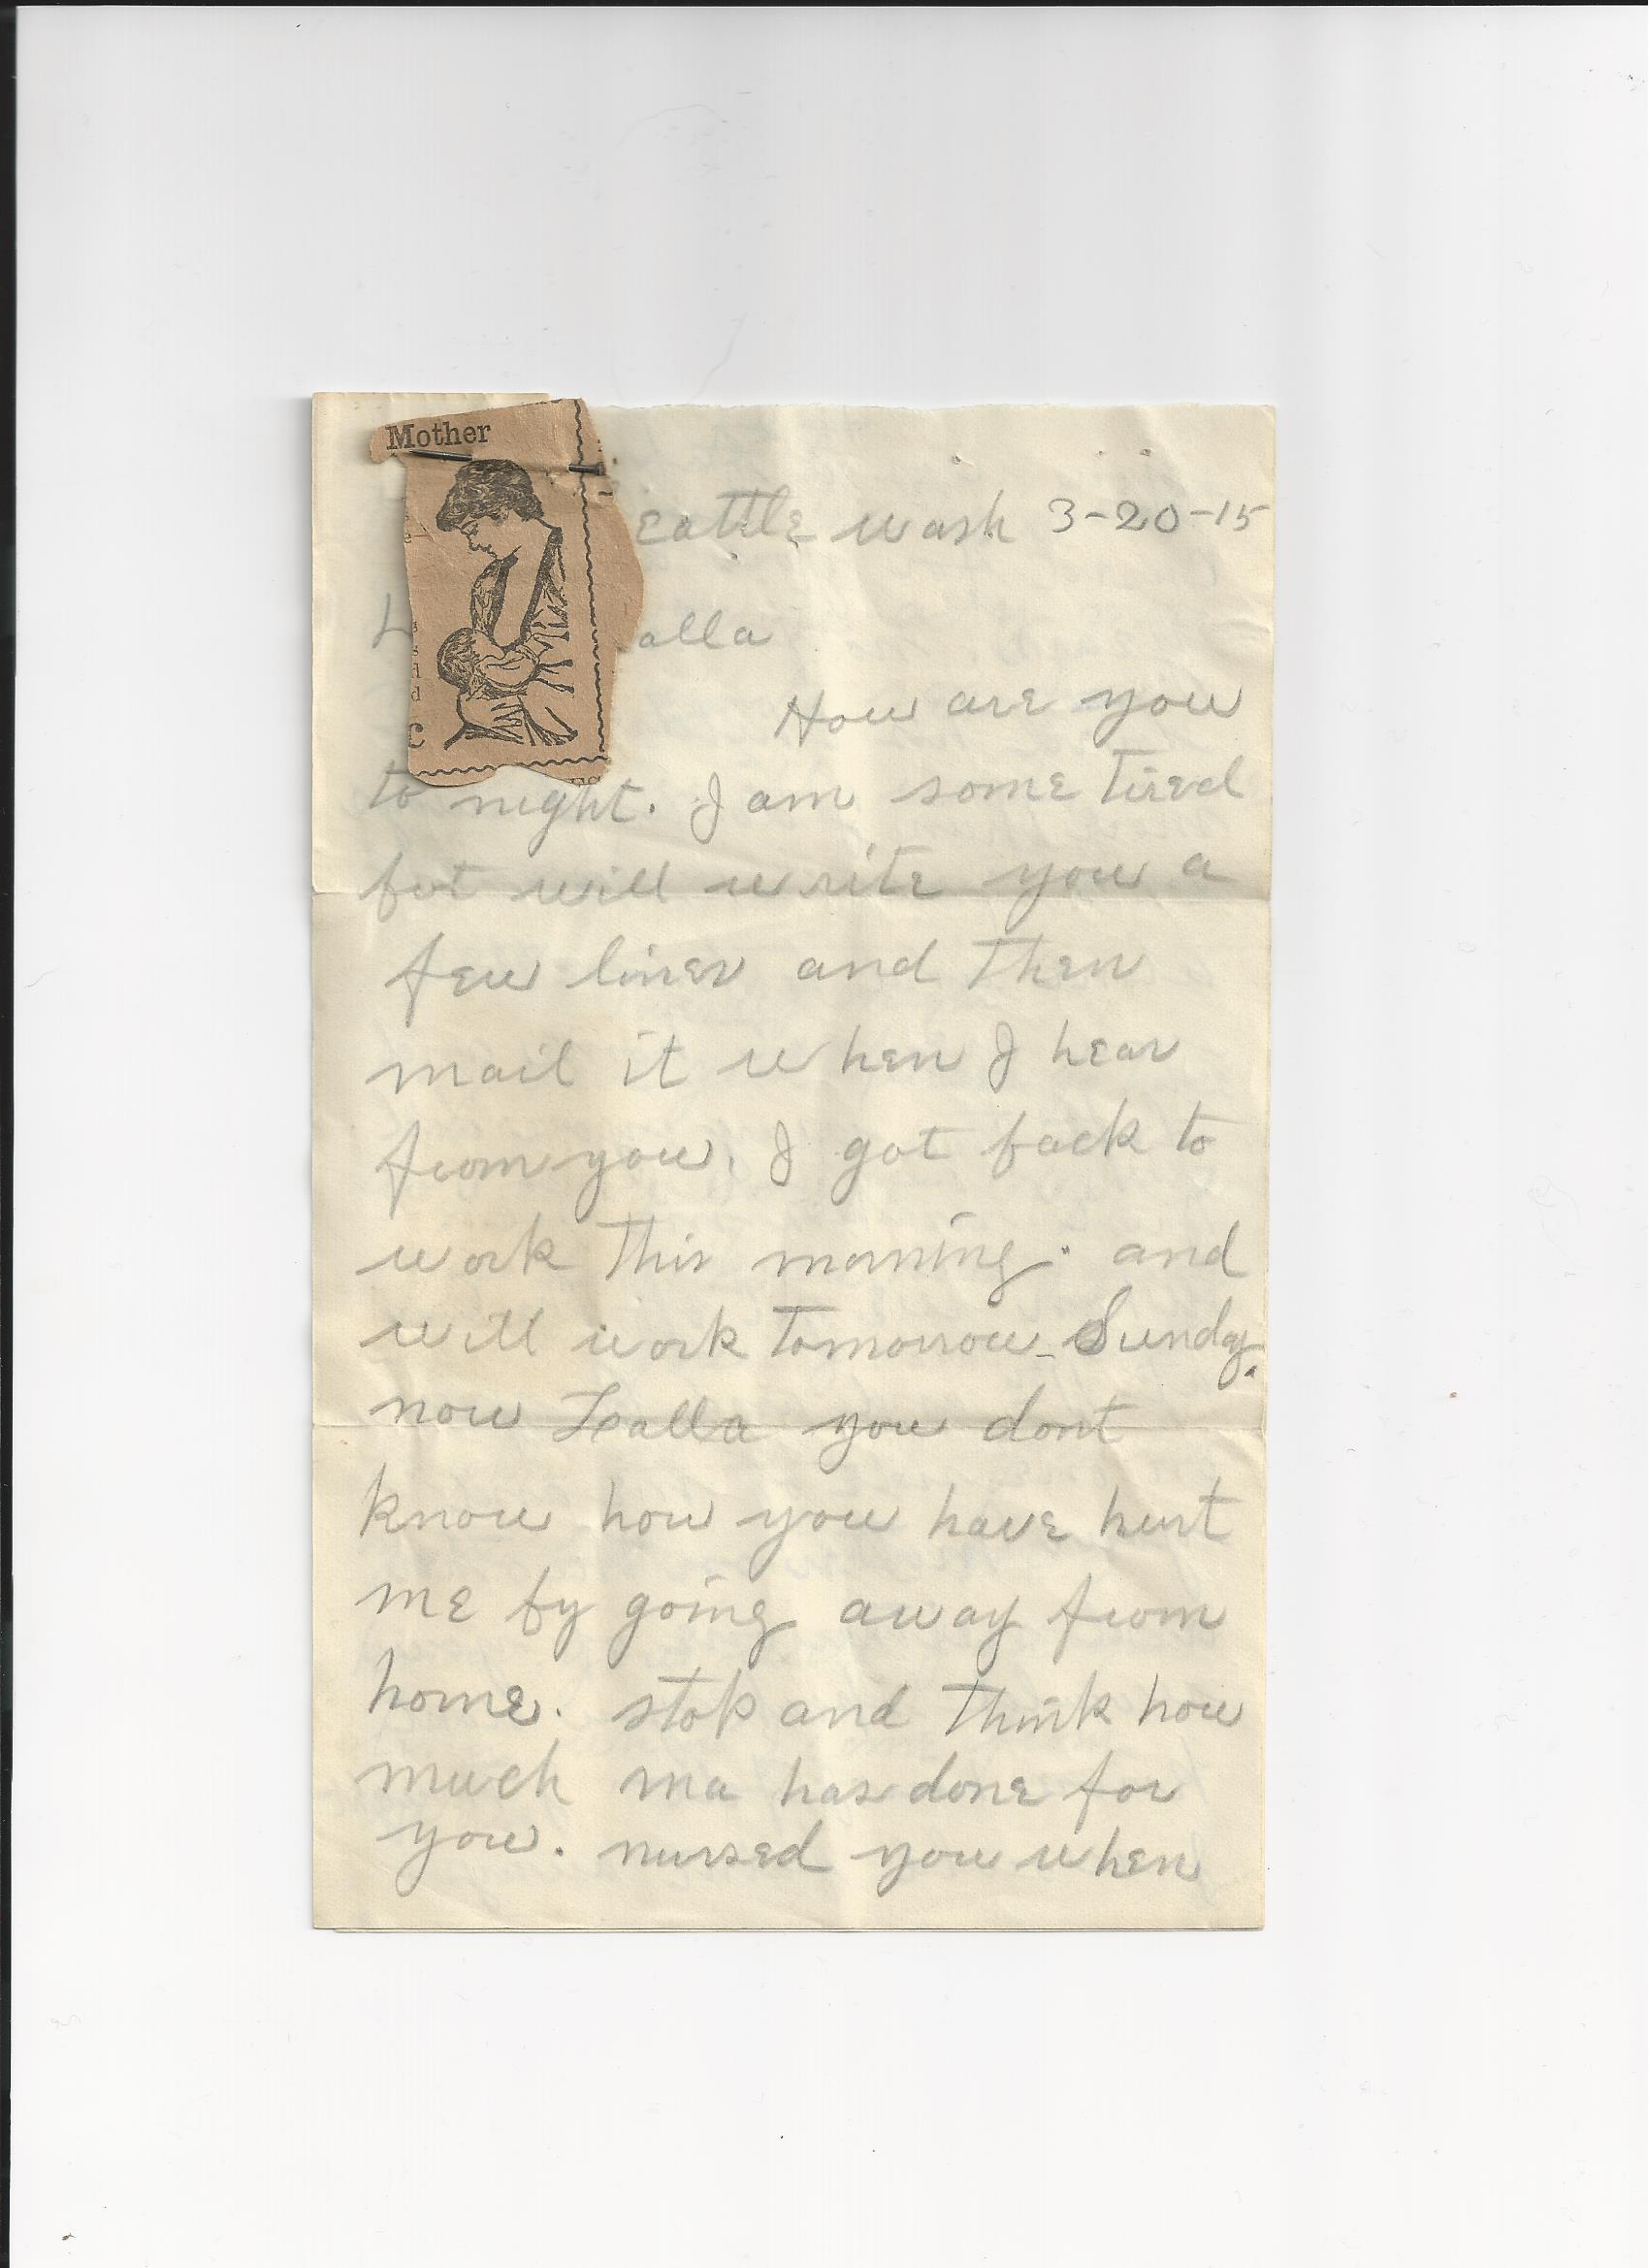 Mother
eattle wash 3-20-15
alla
How are you
to night. I am some tired
but will write you a
few lines and then
mail it when I hear
from you. I got back to
work this morning. and
will work tomorrow - Sunday.
now Lalla you dont
know how you have hurt
me by going away from
home. stop and think how
much ma has done for
you. nursed you when